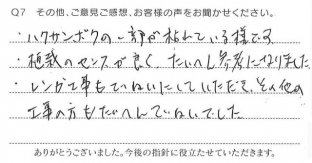 Q7 その他、ご意見ご感想、お客様の声をお聞かせください。
・ハクサンボクの一部が枯れている様です
・植栽のセンスが良く、たいへん参考になりました
・レンガ工事もていねいにしていただき、その他の
工事の方もたいへんていねいでした
ありがとうございました。今後の指針に役立たせていただきます。